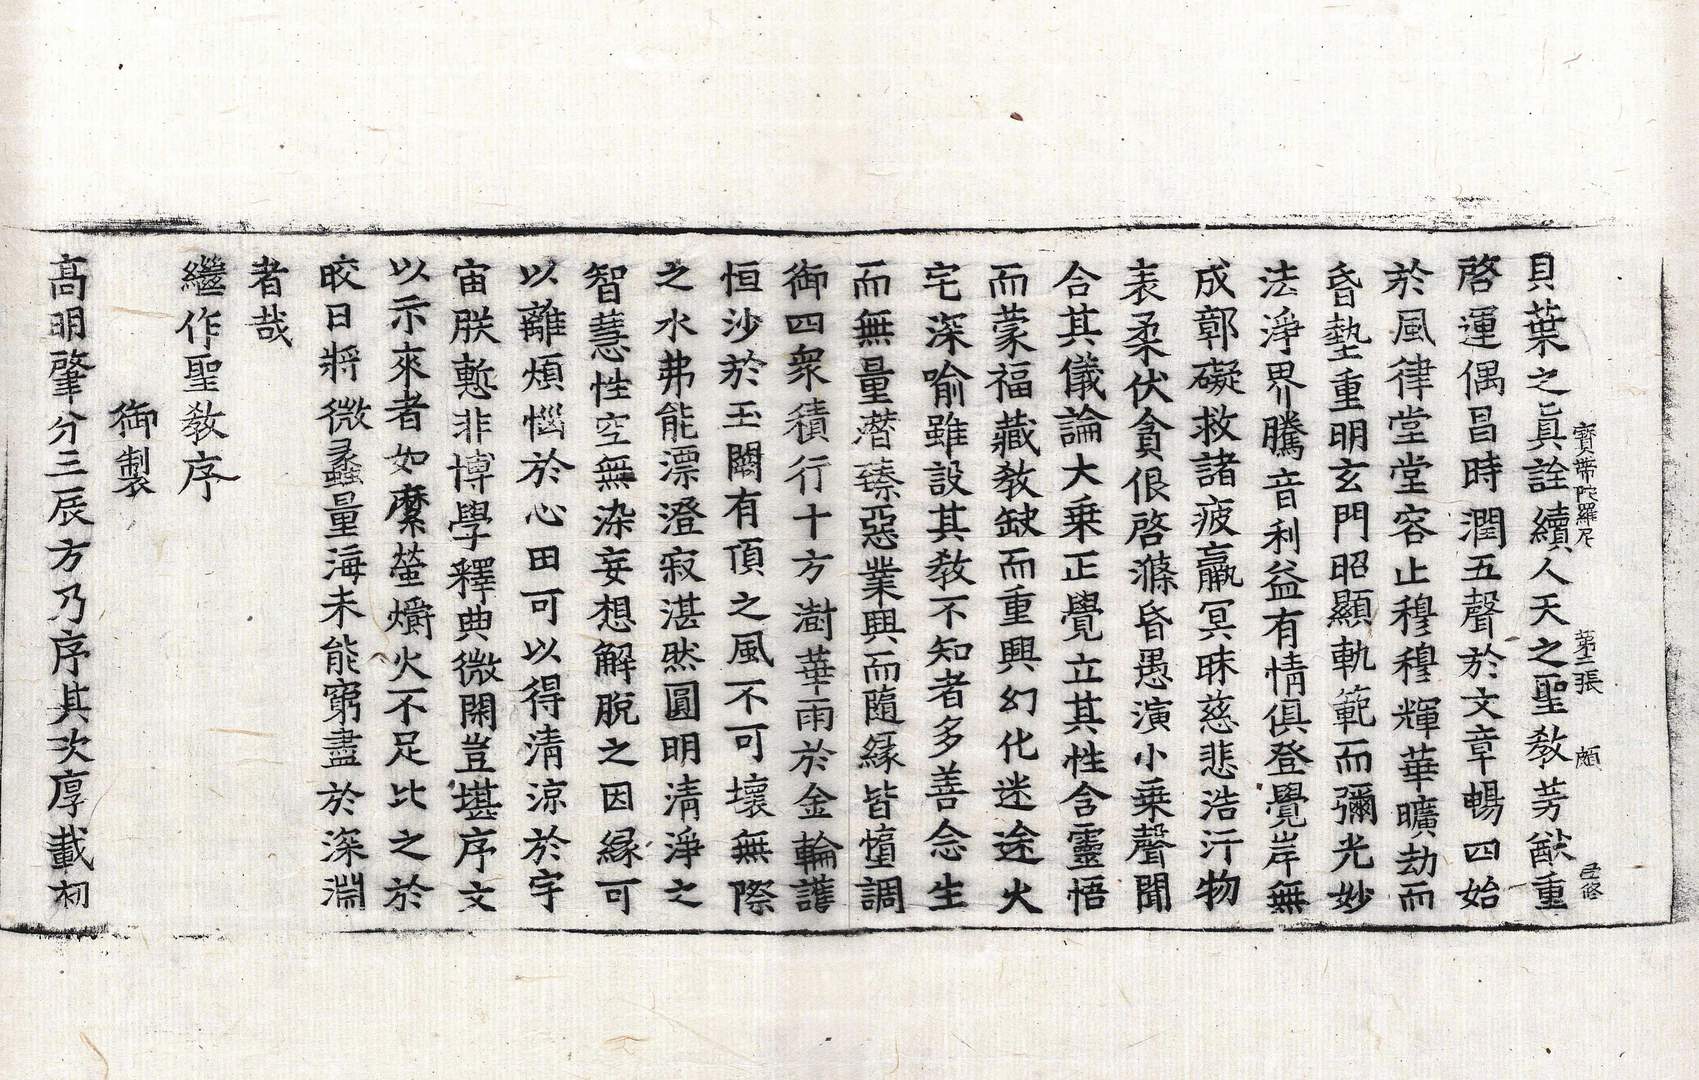 貝葉之眞詮續人天之聖教芳猷重
寶帶陀羅尼 第二張 頗
啓運偶昌時潤五聲於文章暢四始
於風律堂堂容止穆穆輝華曠劫而
昏墊重明玄門昭顯軌範而彌光妙
法淨界騰音利益有情俱登覺岸無
成鄣礙救諸疲羸冥昧慈悲浩汗物
表柔伏貪佷啓滌昏愚演小乗聲聞
合其儀論大乗正覺立其性含靈悟
而蒙福藏教缺而重興幻化迷途火
宅深喻雖設其教不知者多善念生
而無量潛臻惡業興而隨縁皆墮調
御四衆積行十方澍華雨於金輪護
恒沙於玉闕有頂之風不可壞無際
之水弗能漂澄寂湛然圓明清淨之
智慧性空無染妄想解脫之因縁可
以離煩惱於心田可以得清涼於宇
宙朕慙非博學釋典微開豈堪序文
以示來者如縻螢爝火不足比之於
皎日將微蠡量海未能窮盡於深淵
者哉
繼作聖教序
御製
高明肇分三辰方乃序其次厚載初